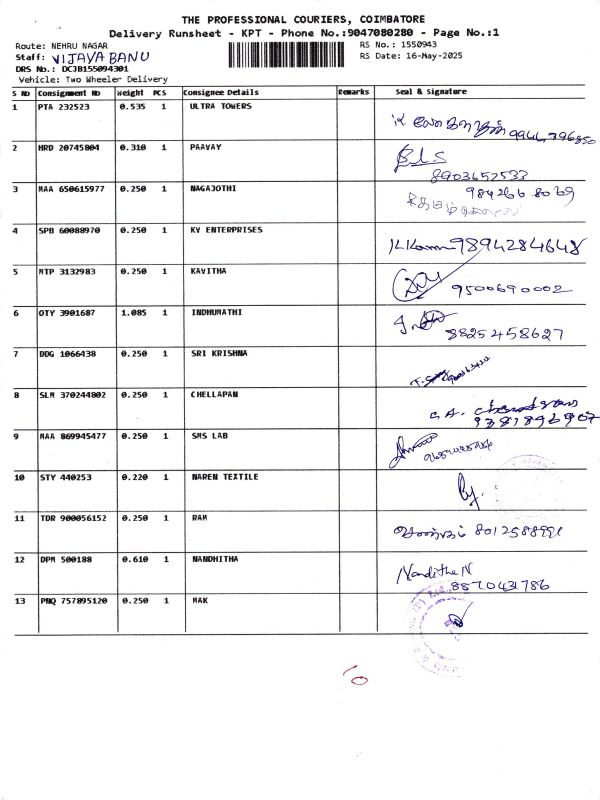 THE PROFESSIONAL COURIERS, COIMBATORE
Delivery Runsheet - KPT - Phone No.:9047080280 - Page No.:1
Route: NEHRU NAGAR RS No.: 1550943
Staff: VIJAYA BANU RS Date: 16-May-2025
DRS No.: DCJB155094301
Vehicle: Two Wheeler Delivery
S No Consignment No Weight PCS Consignee Details Remarks Seal & Signature
1 PTA 232523 0.535 1 ULTRA TOWERS
2 HRD 20745804 0.310 1 PAAVAY
8903652533
3 MAA 650615977 0.250 1 NAGAJOTHI 9842668069
4 SPB 60088970 0.250 1 KV ENTERPRISES
9894284648
5 MTP 3132983 0.250 1 KAVITHA
9500690002
6 OTY 3901687 1.085 1 INDHUMATHI
8825458627
7 DDG 1066438 0.250 1 SRI KRISHNA
8 SLM 370244802 0.250 1 CHELLAPAN
9 MAA 869945477 0.250 1 SMS LAB
10 STY 440253 0.220 1 NAREN TEXTILE
11 TDR 900056152 0.250 1 RAM
12 DPM 500188 0.610 1 NANDHITHA
Nanditha N
8870431786
13 PNQ 757895120 0.250 1 MAK
10